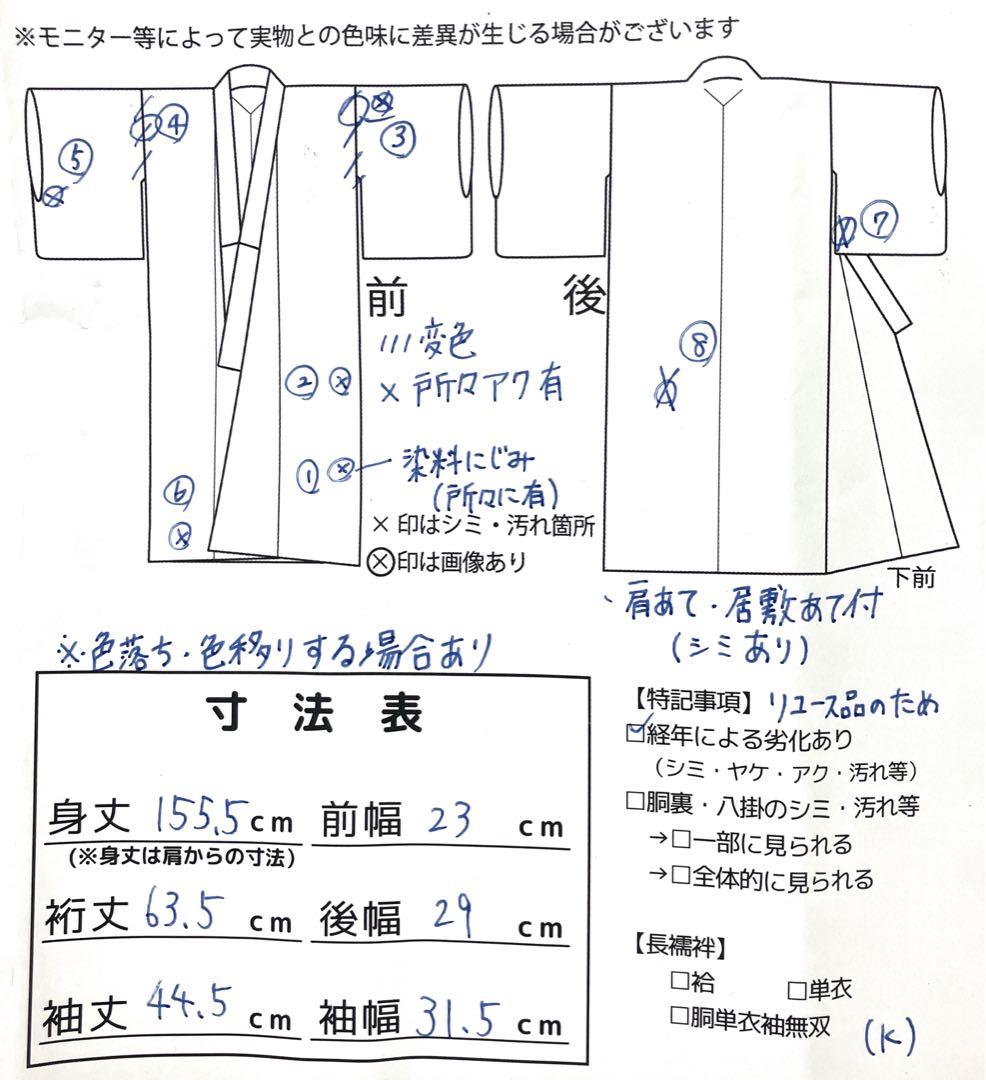 ※モニター等によって実物との色味に差異が生じる場合がございます
④
③
⑤
⑦
前
後
///変色
⑧
② ⓧ
×所々アク有
① ⓧ 染料にじみ
(所々に有)
⑥
ⓧ
×印はシミ・汚れ箇所
ⓧ印は画像あり
下前
、肩あて・居敷あて付
(シミあり)
※色落ち・色移りする場合あり
寸法表
身丈 155.5cm 前幅 23 cm
(※身丈は肩からの寸法)
裄丈 63.5 cm 後幅 29 cm
袖丈 44.5 cm 袖幅 31.5 cm
【特記事項】リユース品のため
☑経年による劣化あり
（シミ・ヤケ・アク・汚れ等）
□胴裏・八掛のシミ・汚れ等
→□一部に見られる
→□全体的に見られる
【長襦袢】
□袷 □単衣
□胴単衣袖無双 (K)